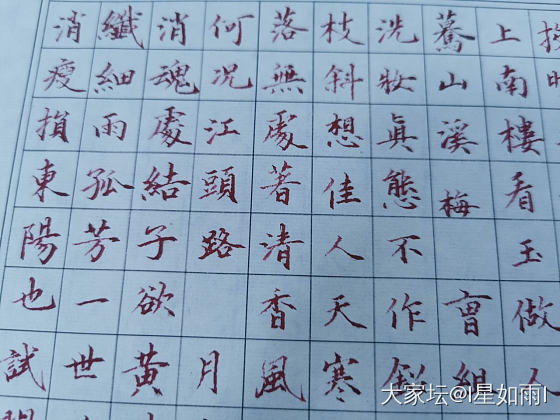 上南樓看玉做人
驀山溪 梅 曺組
洗妝眞態不作鈆
枝斜想佳人天寒
落無處著清香風
何况江頭路 月
消魂處結子欲黄
纖細雨孤芳一世
消瘦損東陽也試
大家坛@I星如雨I